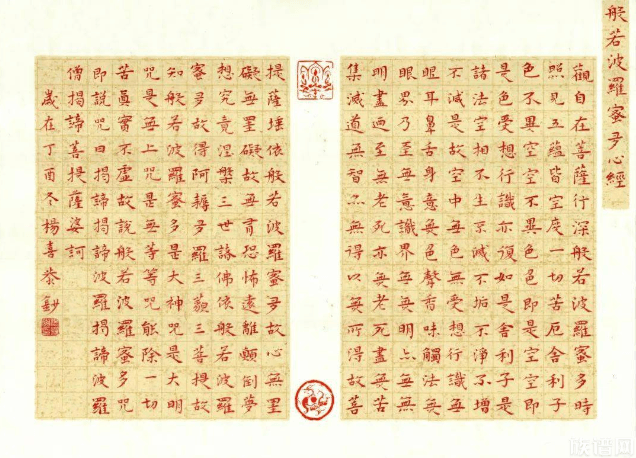 般若波羅蜜多心經
觀自在菩薩行深般若波羅蜜多時
照見五蘊皆空度一切苦厄舍利子
色不異空空不異色色即是空空即
是色受想行識亦復如是舍利子是
諸法空相不生不滅不垢不淨不增
不減是故空中無色無受想行識無
眼耳鼻舌身意無色聲香味觸法無
眼界乃至無意識界無無明亦無無
明盡乃至無老死亦無老死盡無苦
集滅道無智亦無得以無所得故菩
提薩埵依般若波羅蜜多故心無罣
礙無罣礙故無有恐怖遠離顛倒夢
想究竟涅槃三世諸佛依般若波羅
蜜多故得阿耨多羅三藐三菩提故
知般若波羅蜜多是大神咒是大明
咒是無上咒是無等等咒能除一切
苦真實不虛故說般若波羅蜜多咒
即說咒曰揭諦揭諦波羅揭諦波羅
僧揭諦菩提薩婆訶
歲在丁酉冬楊喜恭鈔
族谱网